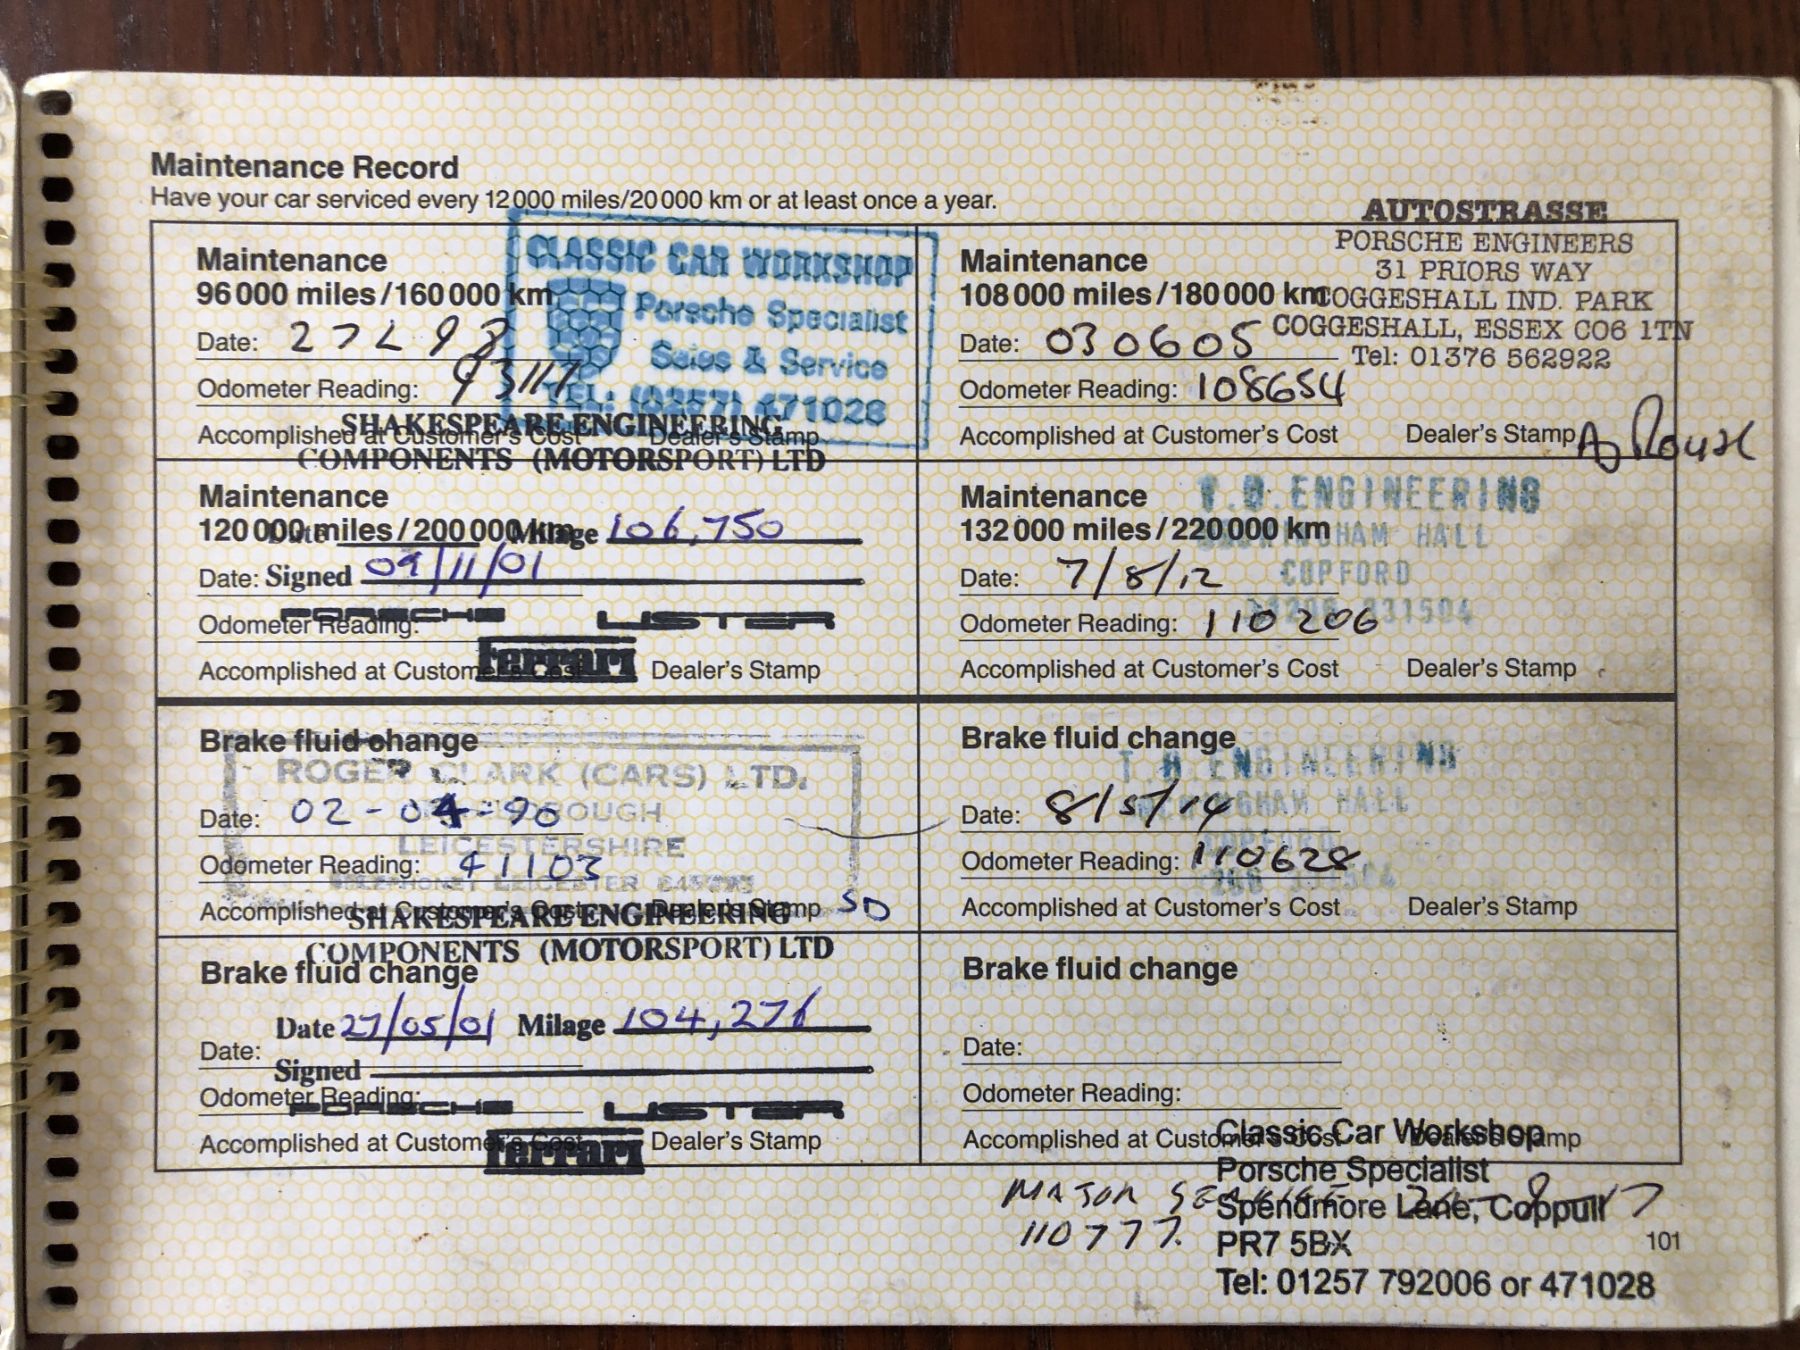 Maintenance Record
Have your car serviced every 12 000 miles/20 000 km or at least once a year.
Maintenance
96 000 miles/160 000 km
Date: 27 98
Odometer Reading: 93117
Accomplished at Customer's Cost Dealer's Stamp
CLASSIC CAR WORKSHOP
Porsche Specialist
Sales & Service
TEL: (0257) 471028
AUTOSTRASSE
PORSCHE ENGINEERS
31 PRIORS WAY
COGGESHALL IND. PARK
COGGESHALL, ESSEX CO6 1TN
Tel: 01376 562922
Maintenance
108 000 miles/180 000 km
Date: 030605
Odometer Reading: 108654
Accomplished at Customer's Cost Dealer's Stamp
A Rouse
SHAKESPEARE ENGINEERING
COMPONENTS (MOTORSPORT) LTD
Maintenance
120 000 miles/200 000 km
Date Milage 106,750
Date: Signed 09/11/01
Odometer Reading:
PORSCHE LISTER
Ferrari
Accomplished at Customer's Cost Dealer's Stamp
Maintenance
132 000 miles/220 000 km
ENGINEERING
HALL
COPFORD
331504
Date: 7/8/12
Odometer Reading: 110206
Accomplished at Customer's Cost Dealer's Stamp
Brake fluid change
ROGER CLARK (CARS) LTD.
LEICESTERSHIRE
Date: 02-04-90
Odometer Reading: 41103
Accomplished at Customer's Cost Dealer's Stamp SD
Brake fluid change
ENGINEERING
HALL
Date: 8/5/14
Odometer Reading: 110628
Accomplished at Customer's Cost Dealer's Stamp
SHAKESPEARE ENGINEERING
COMPONENTS (MOTORSPORT) LTD
Brake fluid change
Date 27/05/01 Milage 104,276
Date:
Signed
Odometer Reading:
PORSCHE LISTER
Ferrari
Accomplished at Customer's Cost Dealer's Stamp
Brake fluid change
Date:
Odometer Reading:
Accomplished at Customer's Cost Dealer's Stamp
Classic Car Workshop
Porsche Specialist
Spendmore Lane, Coppull
PR7 5BX
Tel: 01257 792006 or 471028
MAJOR SERVICE
110777.
101